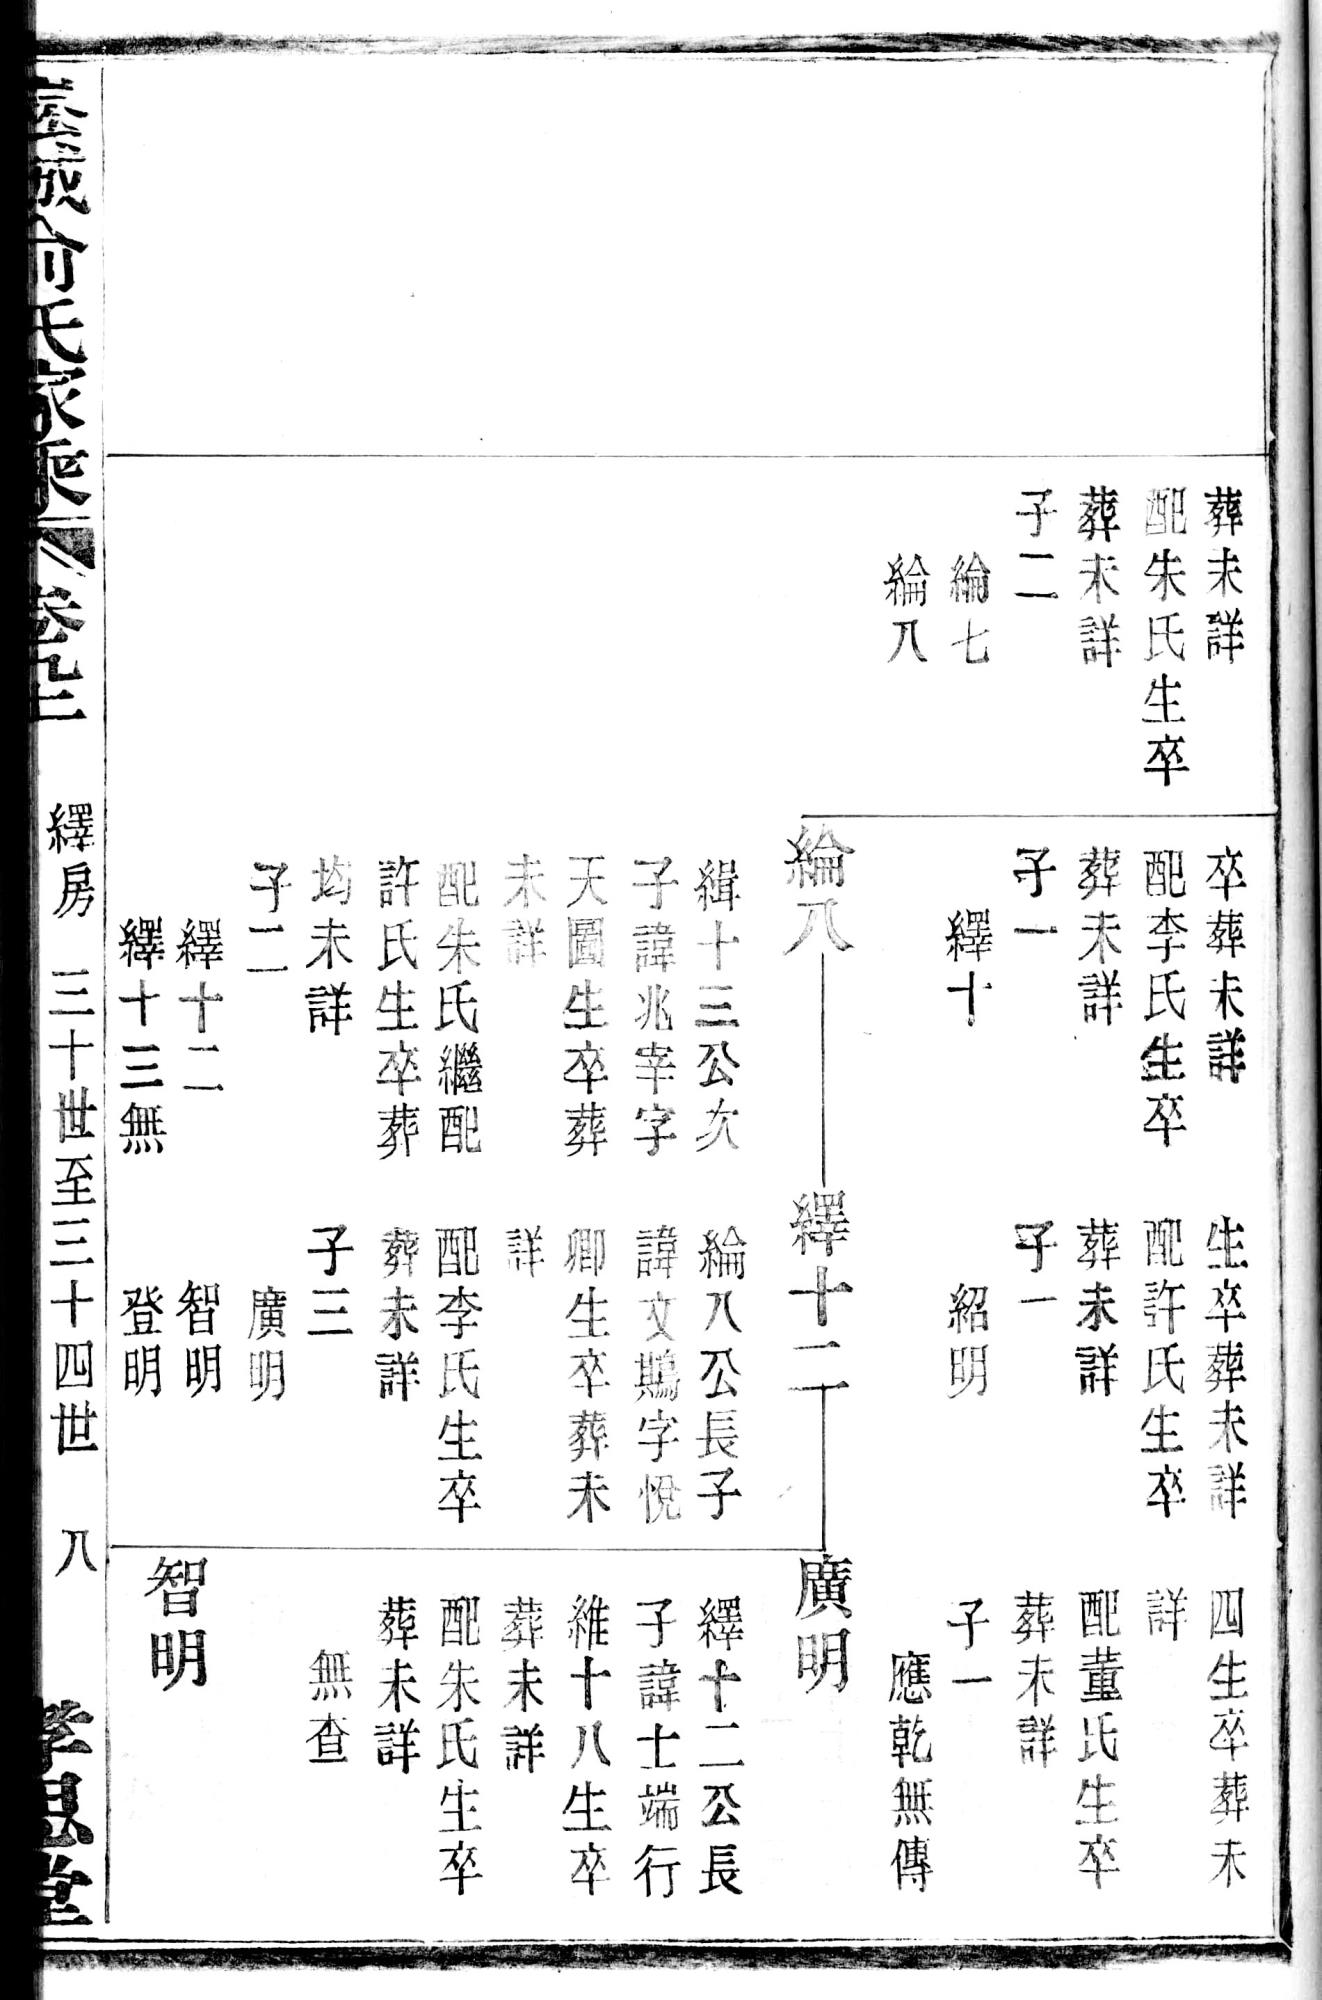 葬未詳
配朱氏生卒
葬未詳
子二
綸七
綸八
卒葬未詳
配李氏生卒
葬未詳
子一
繹十
生卒葬未詳
配許氏生卒
葬未詳
子一
紹明
四生卒葬未
詳
配董氏生卒
葬未詳
子一
應乾無傳
綸八
緝十三公次
子諱兆宰字
天圖生卒葬
未詳
配朱氏繼配
許氏生卒葬
均未詳
子二
繹十二
繹十三無
繹十二
綸八公長子
諱文鵬字悅
卿生卒葬未
詳
配李氏生卒
葬未詳
子三
廣明
智明
登明
廣明
繹十二公長
子諱士端行
維十八生卒
葬未詳
配朱氏生卒
葬未詳
無查
智明
城俞氏家乘
繹房 三十世至三十四世 八
孝思堂